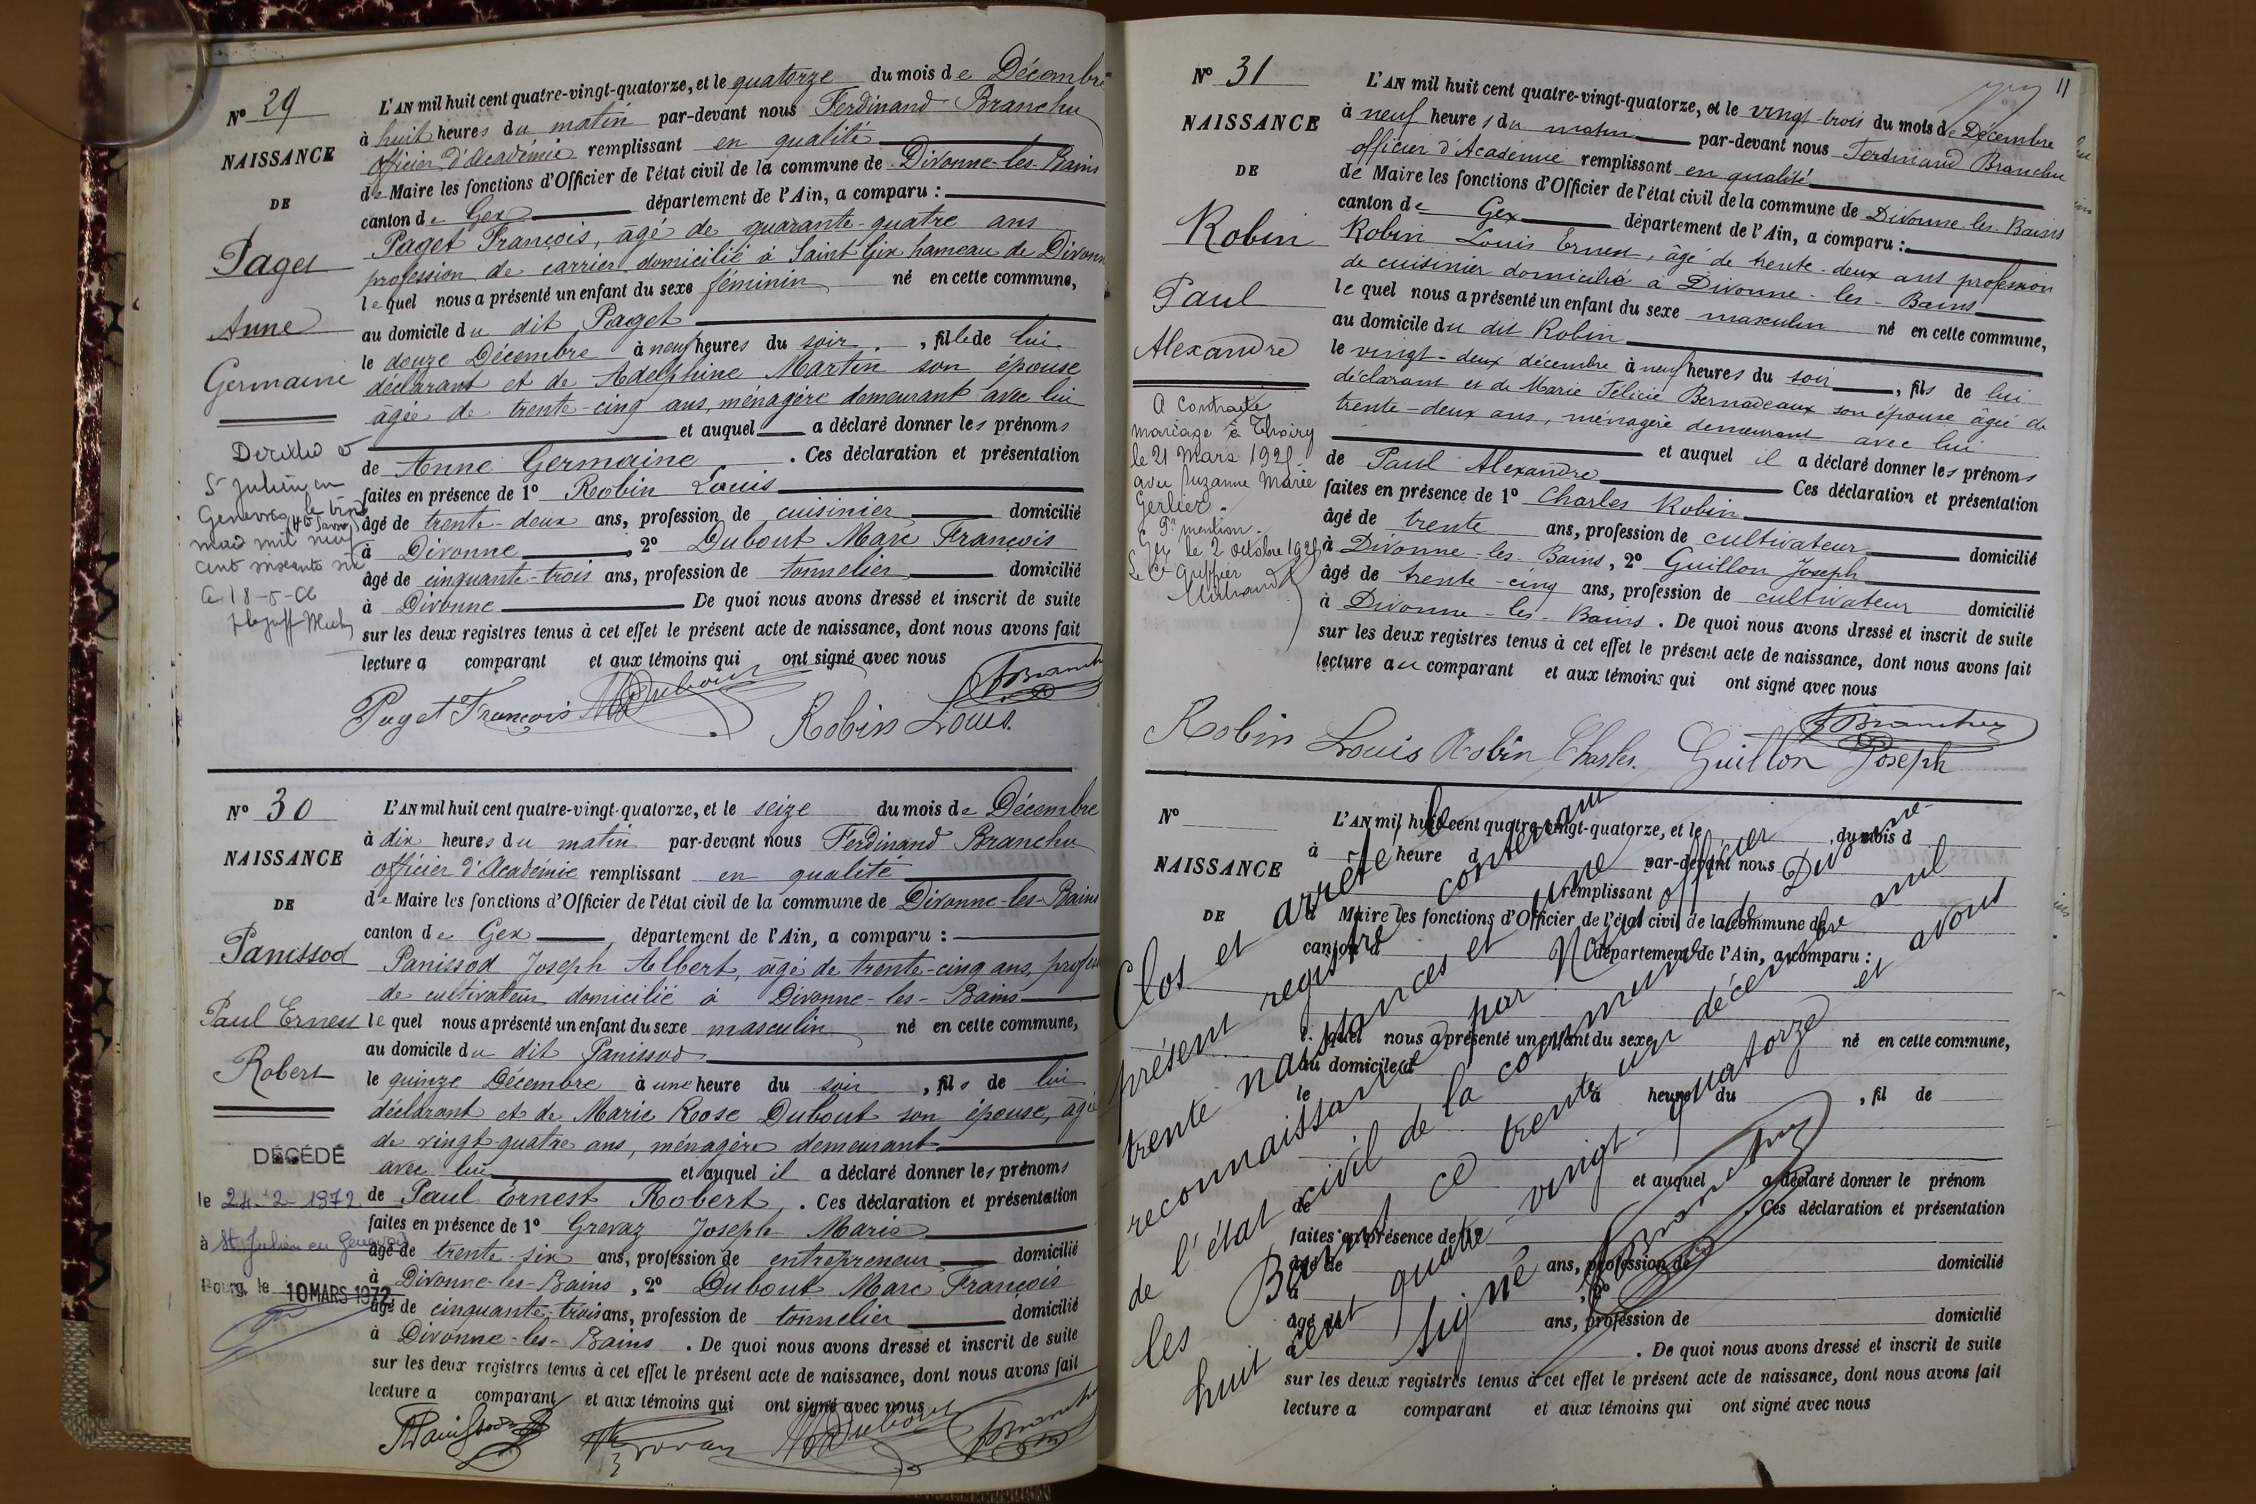 N° 29
NAISSANCE
DE
Paget
Anne
Germaine
Décédée à
St Julien en
Genevois le
mai mil neuf
cent soixante six
L'AN mil huit cent quatre-vingt-quatorze, et le quatorze du mois de Décembre
à huit heures du matin par-devant nous Ferdinand Branchu
officier d'Académie remplissant en qualité
de Maire les fonctions d'Officier de l'état civil de la commune de Divonne-les-Bains
canton de Gex département de l'Ain, a comparu :
Paget François, âgé de quarante-quatre ans
profession de carrier domicilié à Saint Gix hameau de Divonne
lequel nous a présenté un enfant du sexe féminin né en cette commune,
au domicile du dit Paget
le douze Décembre à neuf heures du soir, fille de lui
déclarant et de Adelphine Martin son épouse
âgée de trente-cinq ans, ménagère demeurant avec lui
et auquel a déclaré donner les prénoms
de Anne Germaine. Ces déclaration et présentation
faites en présence de 1° Robin Louis
âgé de trente-deux ans, profession de cuisinier domicilié
à Divonne, 2° Dubout Marc François
âgé de cinquante-trois ans, profession de tonnelier domicilié
à Divonne De quoi nous avons dressé et inscrit de suite
sur les deux registres tenus à cet effet le présent acte de naissance, dont nous avons fait
lecture a comparant et aux témoins qui ont signé avec nous
Paget François Dubout Robin Louis. Branchu
N° 30
NAISSANCE
DE
Panissod
Paul Ernest
Robert
DÉCÉDÉ
le 24-2-1972
à St Julien en Genevois
Bourg, le 10 MARS 1972
L'AN mil huit cent quatre-vingt-quatorze, et le seize du mois de Décembre
à dix heures du matin par-devant nous Ferdinand Branchu
officier d'Académie remplissant en qualité
de Maire les fonctions d'Officier de l'état civil de la commune de Divonne-les-Bains
canton de Gex, département de l'Ain, a comparu :
Panissod Joseph Albert, âgé de trente-cinq ans, profession
de cultivateur domicilié à Divonne-les-Bains
lequel nous a présenté un enfant du sexe masculin né en cette commune,
au domicile du dit Panissod
le quinze Décembre à une heure du soir, fils de lui
déclarant et de Marie Rose Dubout son épouse, âgée
de vingt-quatre ans, ménagère demeurant
avec lui et auquel il a déclaré donner les prénoms
de Paul Ernest Robert. Ces déclaration et présentation
faites en présence de 1° Grevaz Joseph Marie
âgé de trente-six ans, profession de entrepreneur domicilié
à Divonne-les-Bains, 2° Dubout Marc François
âgé de cinquante-trois ans, profession de tonnelier domicilié
à Divonne-les-Bains. De quoi nous avons dressé et inscrit de suite
sur les deux registres tenus à cet effet le présent acte de naissance, dont nous avons fait
lecture a comparant et aux témoins qui ont signé avec nous
Panissod Grevaz Dubout Branchu
11
N° 31
NAISSANCE
DE
Robin
Paul
Alexandre
A contracté
mariage à Thoiry
le 21 Mars 1925
avec Suzanne Marie
Gerlier.
Pr mention.
Gex le 2 octobre 1925
Le Cs Greffier
L'AN mil huit cent quatre-vingt-quatorze, et le vingt-trois du mois de Décembre
à neuf heures du matin par-devant nous Ferdinand Branchu
officier d'Académie remplissant en qualité
de Maire les fonctions d'Officier de l'état civil de la commune de Divonne-les-Bains
canton de Gex département de l'Ain, a comparu :
Robin Louis Ernest, âgé de trente-deux ans profession
de cuisinier domicilié à Divonne-les-Bains
lequel nous a présenté un enfant du sexe masculin né en cette commune,
au domicile du dit Robin
le vingt-deux décembre à neuf heures du soir, fils de lui
déclarant et de Marie Félicie Bernadeaux son épouse âgée de
trente-deux ans, ménagère demeurant avec lui
et auquel il a déclaré donner les prénoms
de Paul Alexandre Ces déclaration et présentation
faites en présence de 1° Charles Robin
âgé de trente ans, profession de cultivateur domicilié
à Divonne-les-Bains, 2° Guillon Joseph
âgé de trente-cinq ans, profession de cultivateur domicilié
à Divonne-les-Bains. De quoi nous avons dressé et inscrit de suite
sur les deux registres tenus à cet effet le présent acte de naissance, dont nous avons fait
lecture au comparant et aux témoins qui ont signé avec nous
Robin Louis Robin Charles. Guillon Joseph Branchu
N°
NAISSANCE
DE
L'AN mil huit cent quatre-vingt-quatorze, et le du mois d
à heure d par-devant nous
remplissant
d Maire les fonctions d'Officier de l'état civil de la commune de
canton d département de l'Ain, a comparu :
l quel nous a présenté un enfant du sexe né en cette commune,
au domicile d
le à heure du, fil de
et auquel a déclaré donner le prénom
de. Ces déclaration et présentation
faites en présence de 1°
âgé de ans, profession de domicilié
à, 2°
âgé de ans, profession de domicilié
à. De quoi nous avons dressé et inscrit de suite
sur les deux registres tenus à cet effet le présent acte de naissance, dont nous avons fait
lecture a comparant et aux témoins qui ont signé avec nous
Clos et arrêté le
présent registre contenant
trente naissances et une
reconnaissance par Nous officier
de l'état civil de la commune de Divonne-
les Bains ce trente un décembre mil
huit cent quatre-vingt-quatorze et avons
signé Branchu